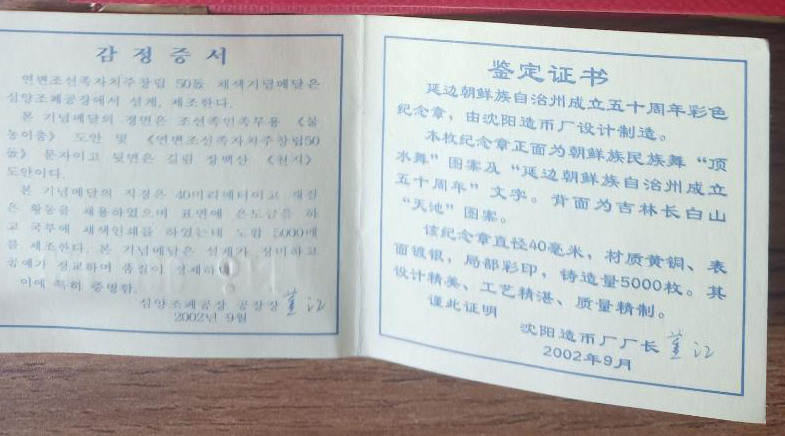 감정증서
연변조선족자치주창립 50돐 채색기념메달은
심양조폐공장에서 설계, 제조한다.
본 기념메달의 정면은 조선족민족무용 《물
동이춤》 도안 및 《연변조선족자치주창립50
돐》 문자이고 뒷면은 길림 장백산 《천지》
도안이다.
본 기념메달의 직경은 40미리메터이고 재질
은 황동을 채용하였으며 표면에 은도금을 하
고 국부에 채색인쇄를 하였는데 도합 5000매
를 제조한다. 본 기념메달은 설계가 정미하고
공예가 정교하며 품질이 정세하다.
이에 특히 증명함.
심양조폐공장 공장장
2002년 9월
鉴定证书
延边朝鲜族自治州成立五十周年彩色
纪念章,由沈阳造币厂设计制造。
本枚纪念章正面为朝鲜族民族舞“顶
水舞”图案及“延边朝鲜族自治州成立
五十周年”文字。背面为吉林长白山
“天池”图案。
该纪念章直径40毫米,材质黄铜、表
面镀银,局部彩印,铸造量5000枚。其
设计精美、工艺精湛、质量精制。
谨此证明
沈阳造币厂厂长
2002年9月